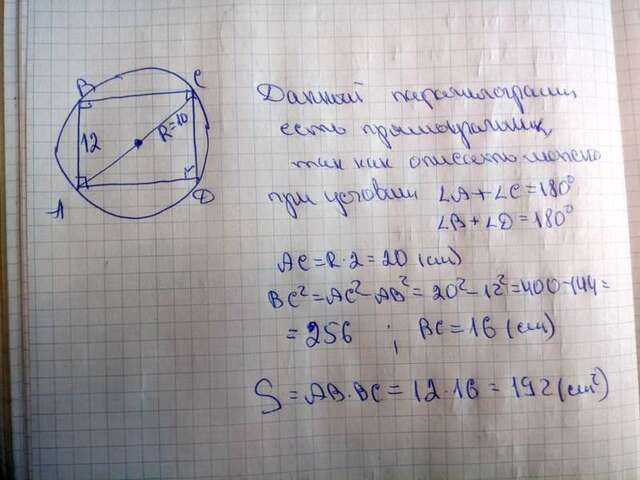 A
B
12
R=10
D
C
Данный параллелограмм
есть прямоугольник,
так как описать можно
при условии ∠A+∠C=180°
∠B+∠D=180°
AC=R·2=20 (см)
BC²=AC²-AB²=20²-12²=400-144=
=256 ; BC=16 (см)
S=AB·BC=12·16=192 (см²)